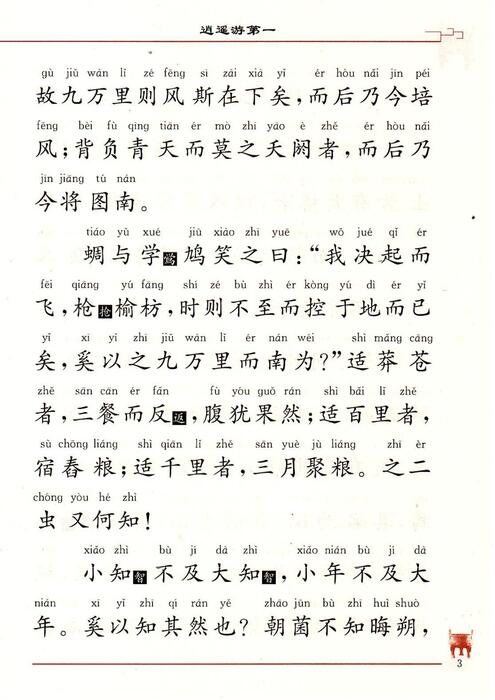 逍遥游第一
gù jiǔ wàn lǐ zé fēng sī zài xià yǐ ér hòu nǎi jīn péi
故九万里则风斯在下矣，而后乃今培
fēng bèi fù qīng tiān ér mò zhī yāo è zhě ér hòu nǎi
风；背负青天而莫之夭阏者，而后乃
jīn jiāng tú nán
今将图南。
tiáo yǔ xué jiū xiào zhī yuē wǒ jué qǐ ér
蜩与学鸴鸠笑之曰：“我决起而
fēi qiāng yú fāng shí zé bù zhì ér kòng yú dì ér yǐ
飞，枪抢榆枋，时则不至而控于地而已
yǐ xī yǐ zhī jiǔ wàn lǐ ér nán wéi shì mǎng cāng
矣，奚以之九万里而南为？”适莽苍
zhě sān cān ér fǎn fù yóu guǒ rán shì bǎi lǐ zhě
者，三餐而反返，腹犹果然；适百里者，
sù chōng liáng shì qiān lǐ zhě sān yuè jù liáng zhī èr
宿舂粮；适千里者，三月聚粮。之二
chóng yòu hé zhī
虫又何知！
xiǎo zhì bù jí dà zhì xiǎo nián bù jí dà
小知智不及大知智，小年不及大
nián xī yǐ zhī qí rán yě zhāo jūn bù zhī huì shuò
年。奚以知其然也？朝菌不知晦朔，
3